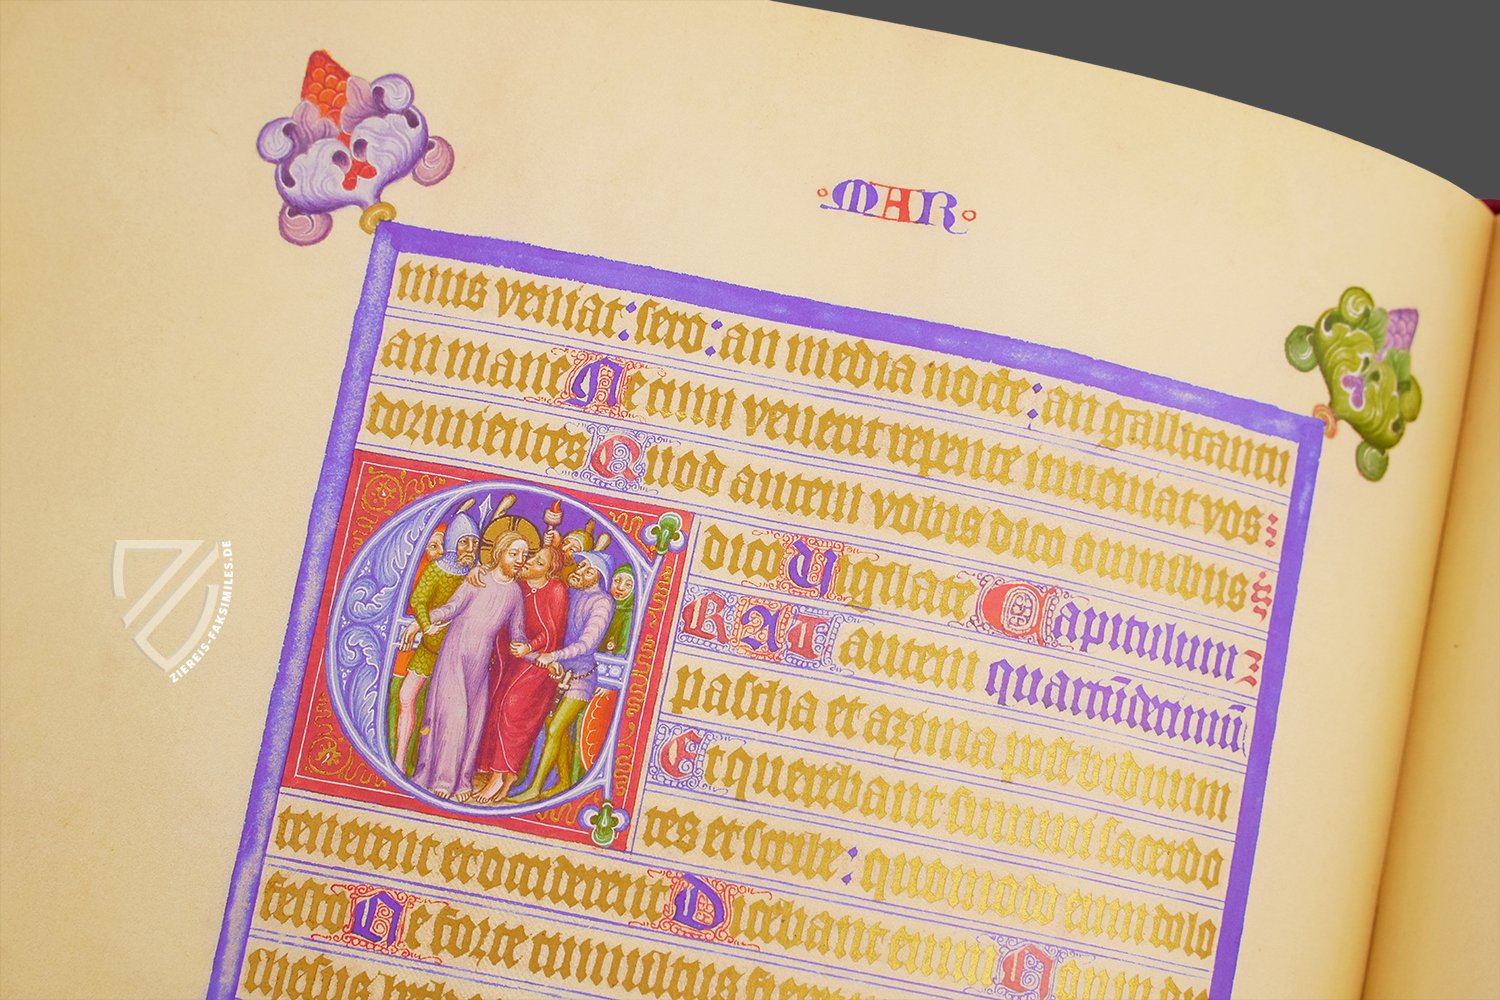 ·MAR·
mus veniat: sero: an media nocte: an gallicantu
an mane Ne cum venerit repente inueniat vos
dormientes Quod autem vobis dico omnibus
dico Vigilate Capitulum
ERAT autem quartūdecimū
pascha et azima post biduum
Et querebant summi sacerdo
tes et scribe: quomodo eum dolo
tenerent et occiderent Dicebant enim Non in di
festo Ne forte tumultus fieret
ZIEREIS-FAKSIMILES.DE